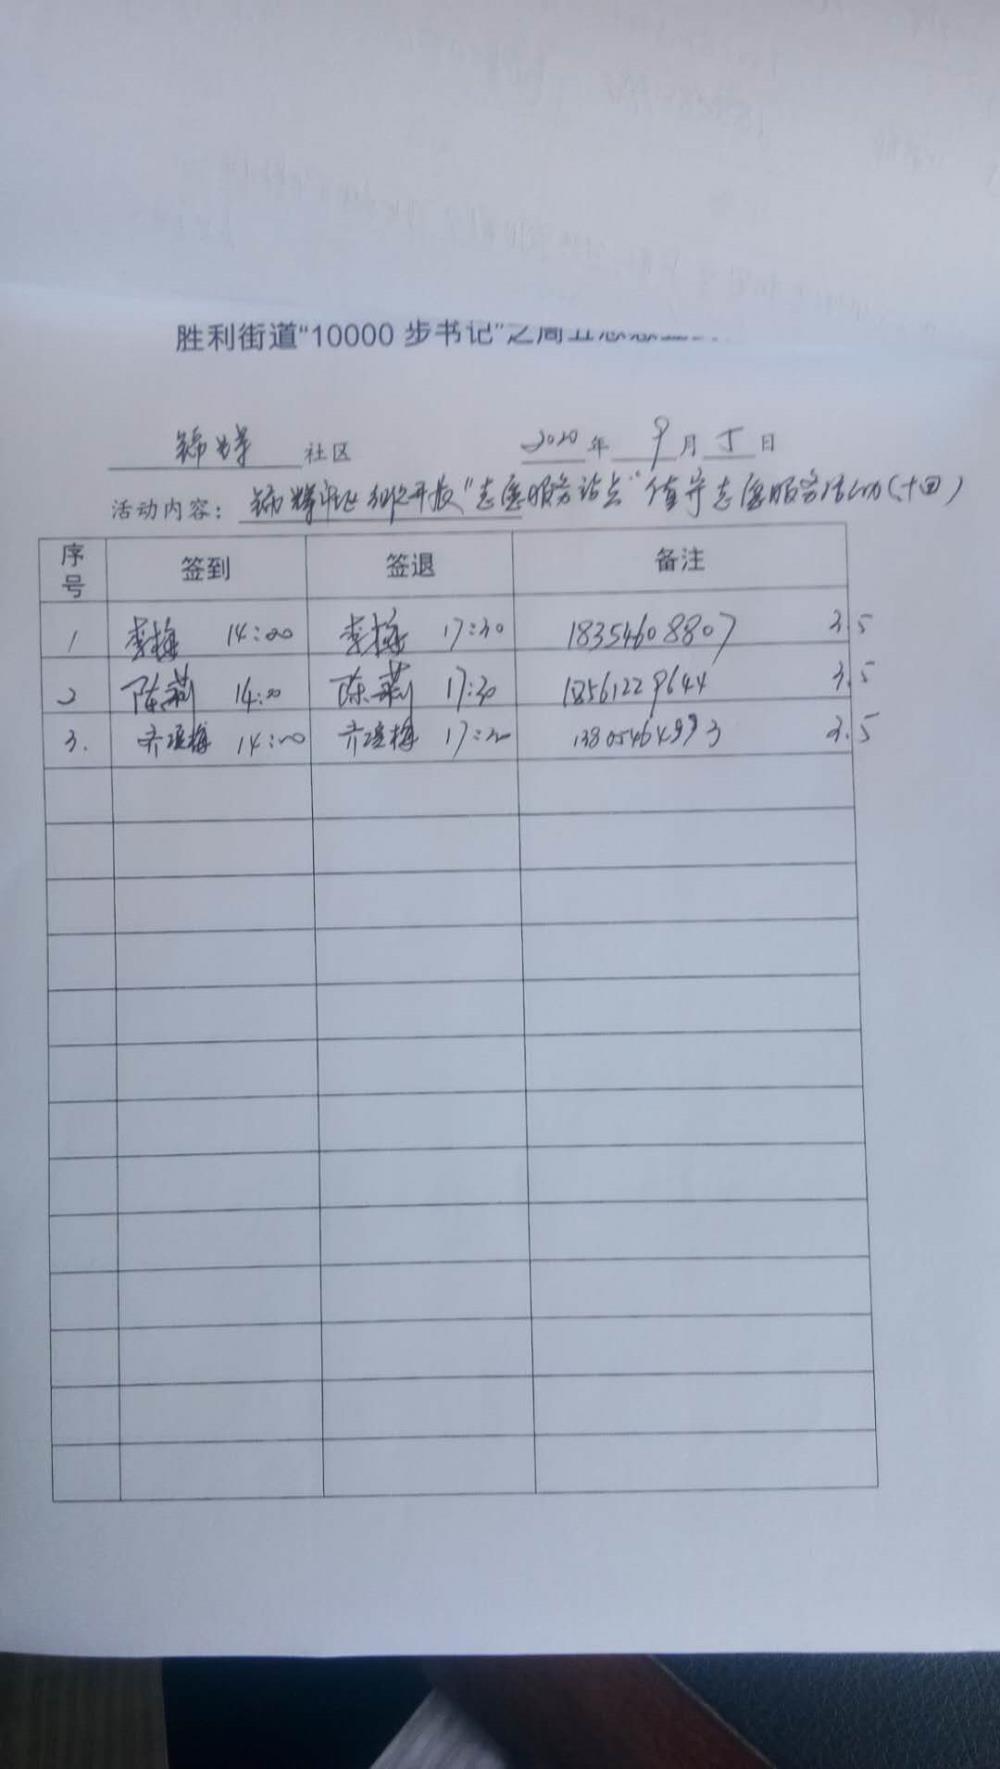 胜利街道“10000 步书记”之周五志愿
锦辉 社区 2020 年 9 月 5 日
活动内容: 锦辉社区 开放“志愿服务站点”值守志愿服务活动(十四)
序号 签到 签退 备注
1 李梅 14:00 李梅 17:30 18354608807 3.5
2 陈莉 14:00 陈莉 17:30 18561229644 3.5
3. 齐瑶梅 14:00 齐瑶梅 17:30 13805464993 3.5